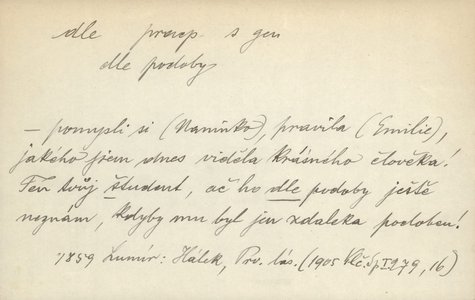 dle praep. s gen
dle podoby
– pomysli si (Maminko), pravila (Emilie),
jakého jsem dnes viděla krásného člověka!
Ten tvůj študent, ač ho dle podoby ještě
neznám, kdyby mu byl jen zdaleka podoben!
1859 Lumír: Hálek, Prv. lás. (1905 Vlč. Sp I 279, 16)